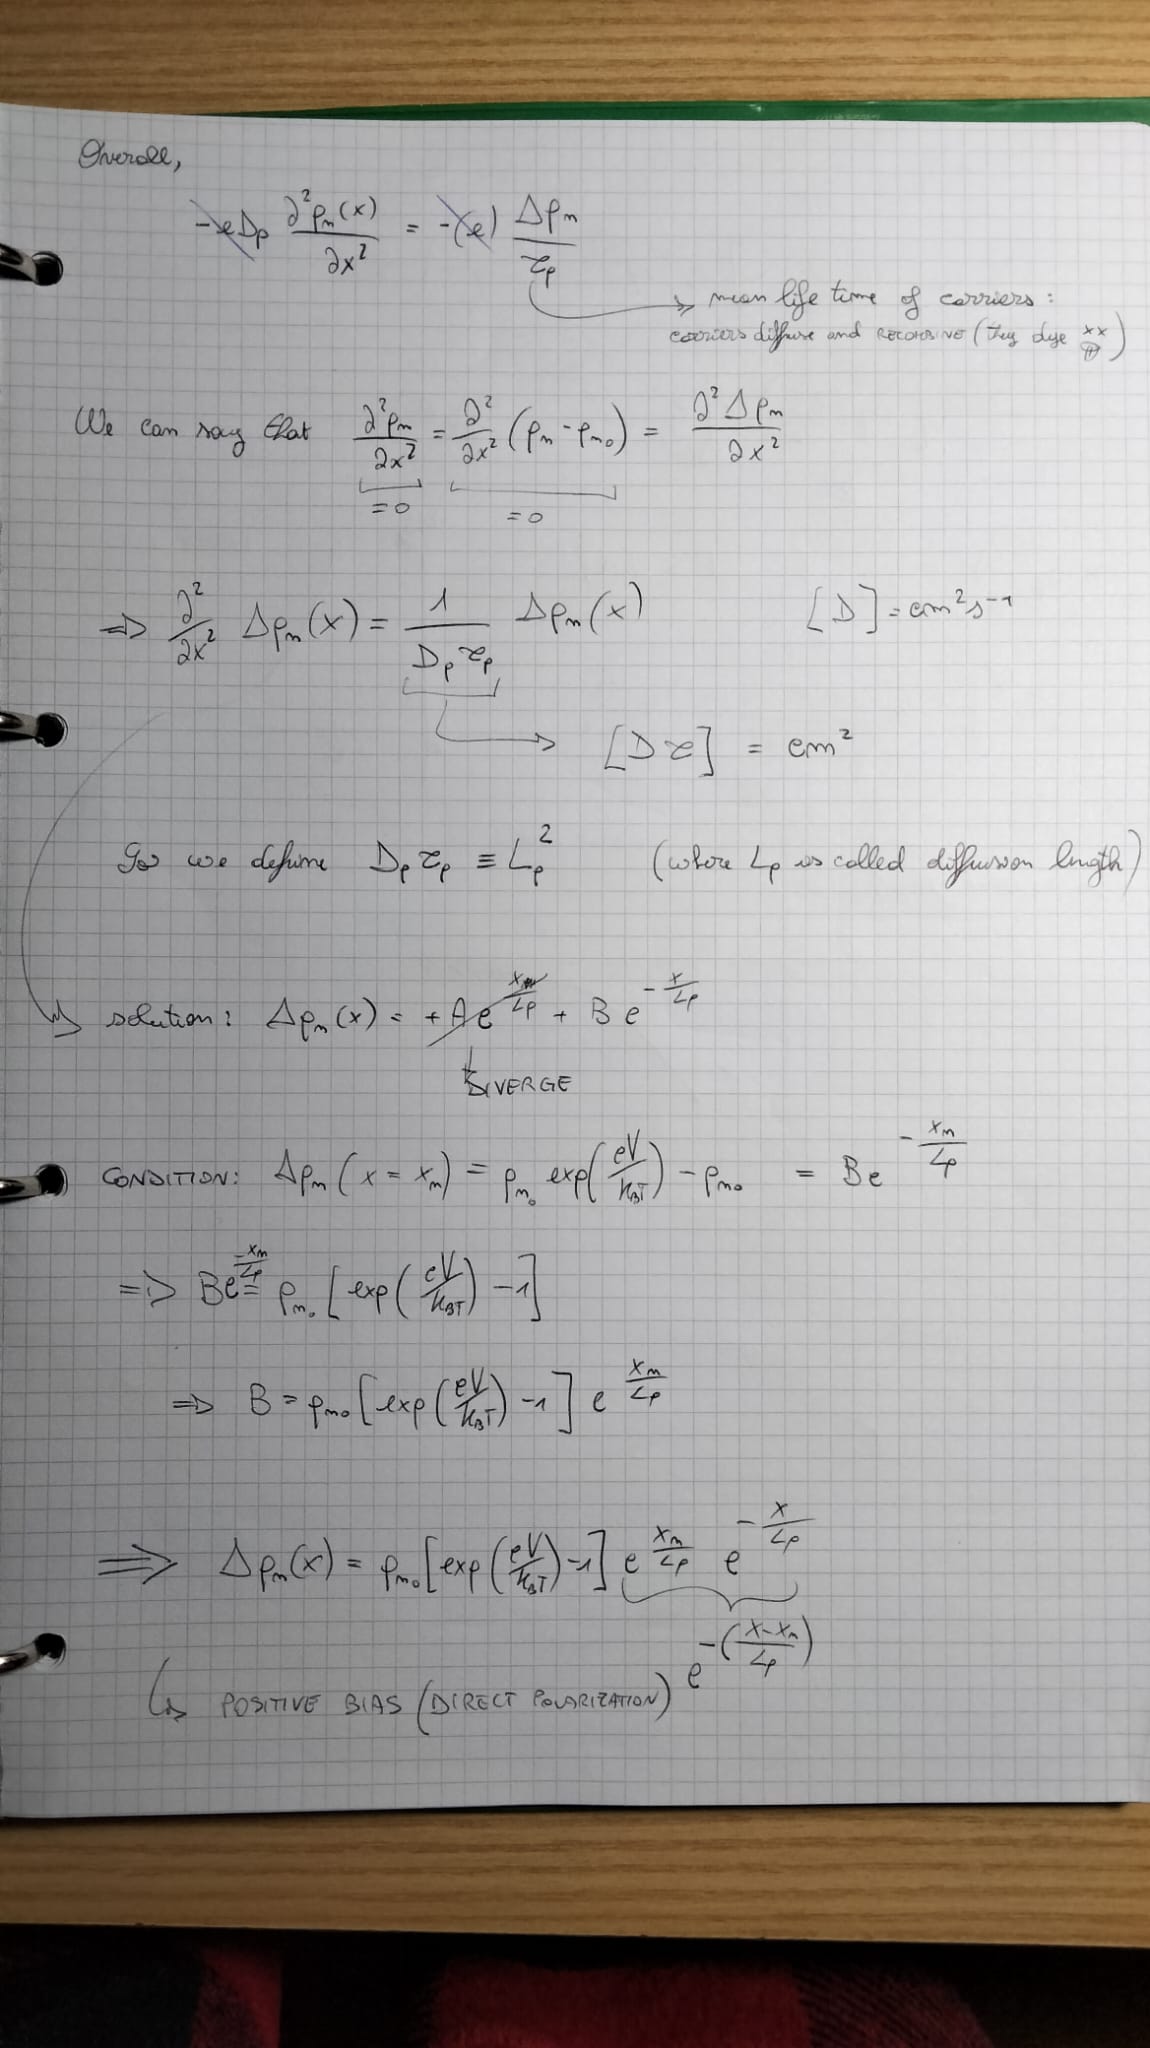 Overall,
-eDₚ ∂²pₙ(x)/∂x² = -(e) Δpₙ/τₚ
→ mean life time of carriers:
carriers diffuse and RECOMBINE (they dye xx)
We can say that ∂²pₙ/∂x² = ∂²/∂x² (pₙ - pₙ₀) = ∂²Δpₙ/∂x²
=0 =0
⇒ ∂²/∂x² Δpₙ(x) = 1/(Dₚτₚ) Δpₙ(x) [D] = cm²s⁻¹
→ [Dτ] = cm²
So we define Dₚτₚ ≡ Lₚ² (where Lₚ is called diffusion length)
solution: Δpₙ(x) = +A e^(x/Lₚ) + B e^(-x/Lₚ)
DIVERGE
CONDITION: Δpₙ(x = xₙ) = pₙ₀ exp(eV/k_BT) - pₙ₀ = B e^(-xₙ/Lₚ)
⇒ B e^(-xₙ/Lₚ) = pₙ₀ [exp(eV/k_BT) - 1]
⇒ B = pₙ₀ [exp(eV/k_BT) - 1] e^(xₙ/Lₚ)
⇒ Δpₙ(x) = pₙ₀ [exp(eV/k_BT) - 1] e^(xₙ/Lₚ) e^(-x/Lₚ)
e^(-((x-xₙ)/Lₚ))
↳ POSITIVE BIAS (DIRECT POLARIZATION)